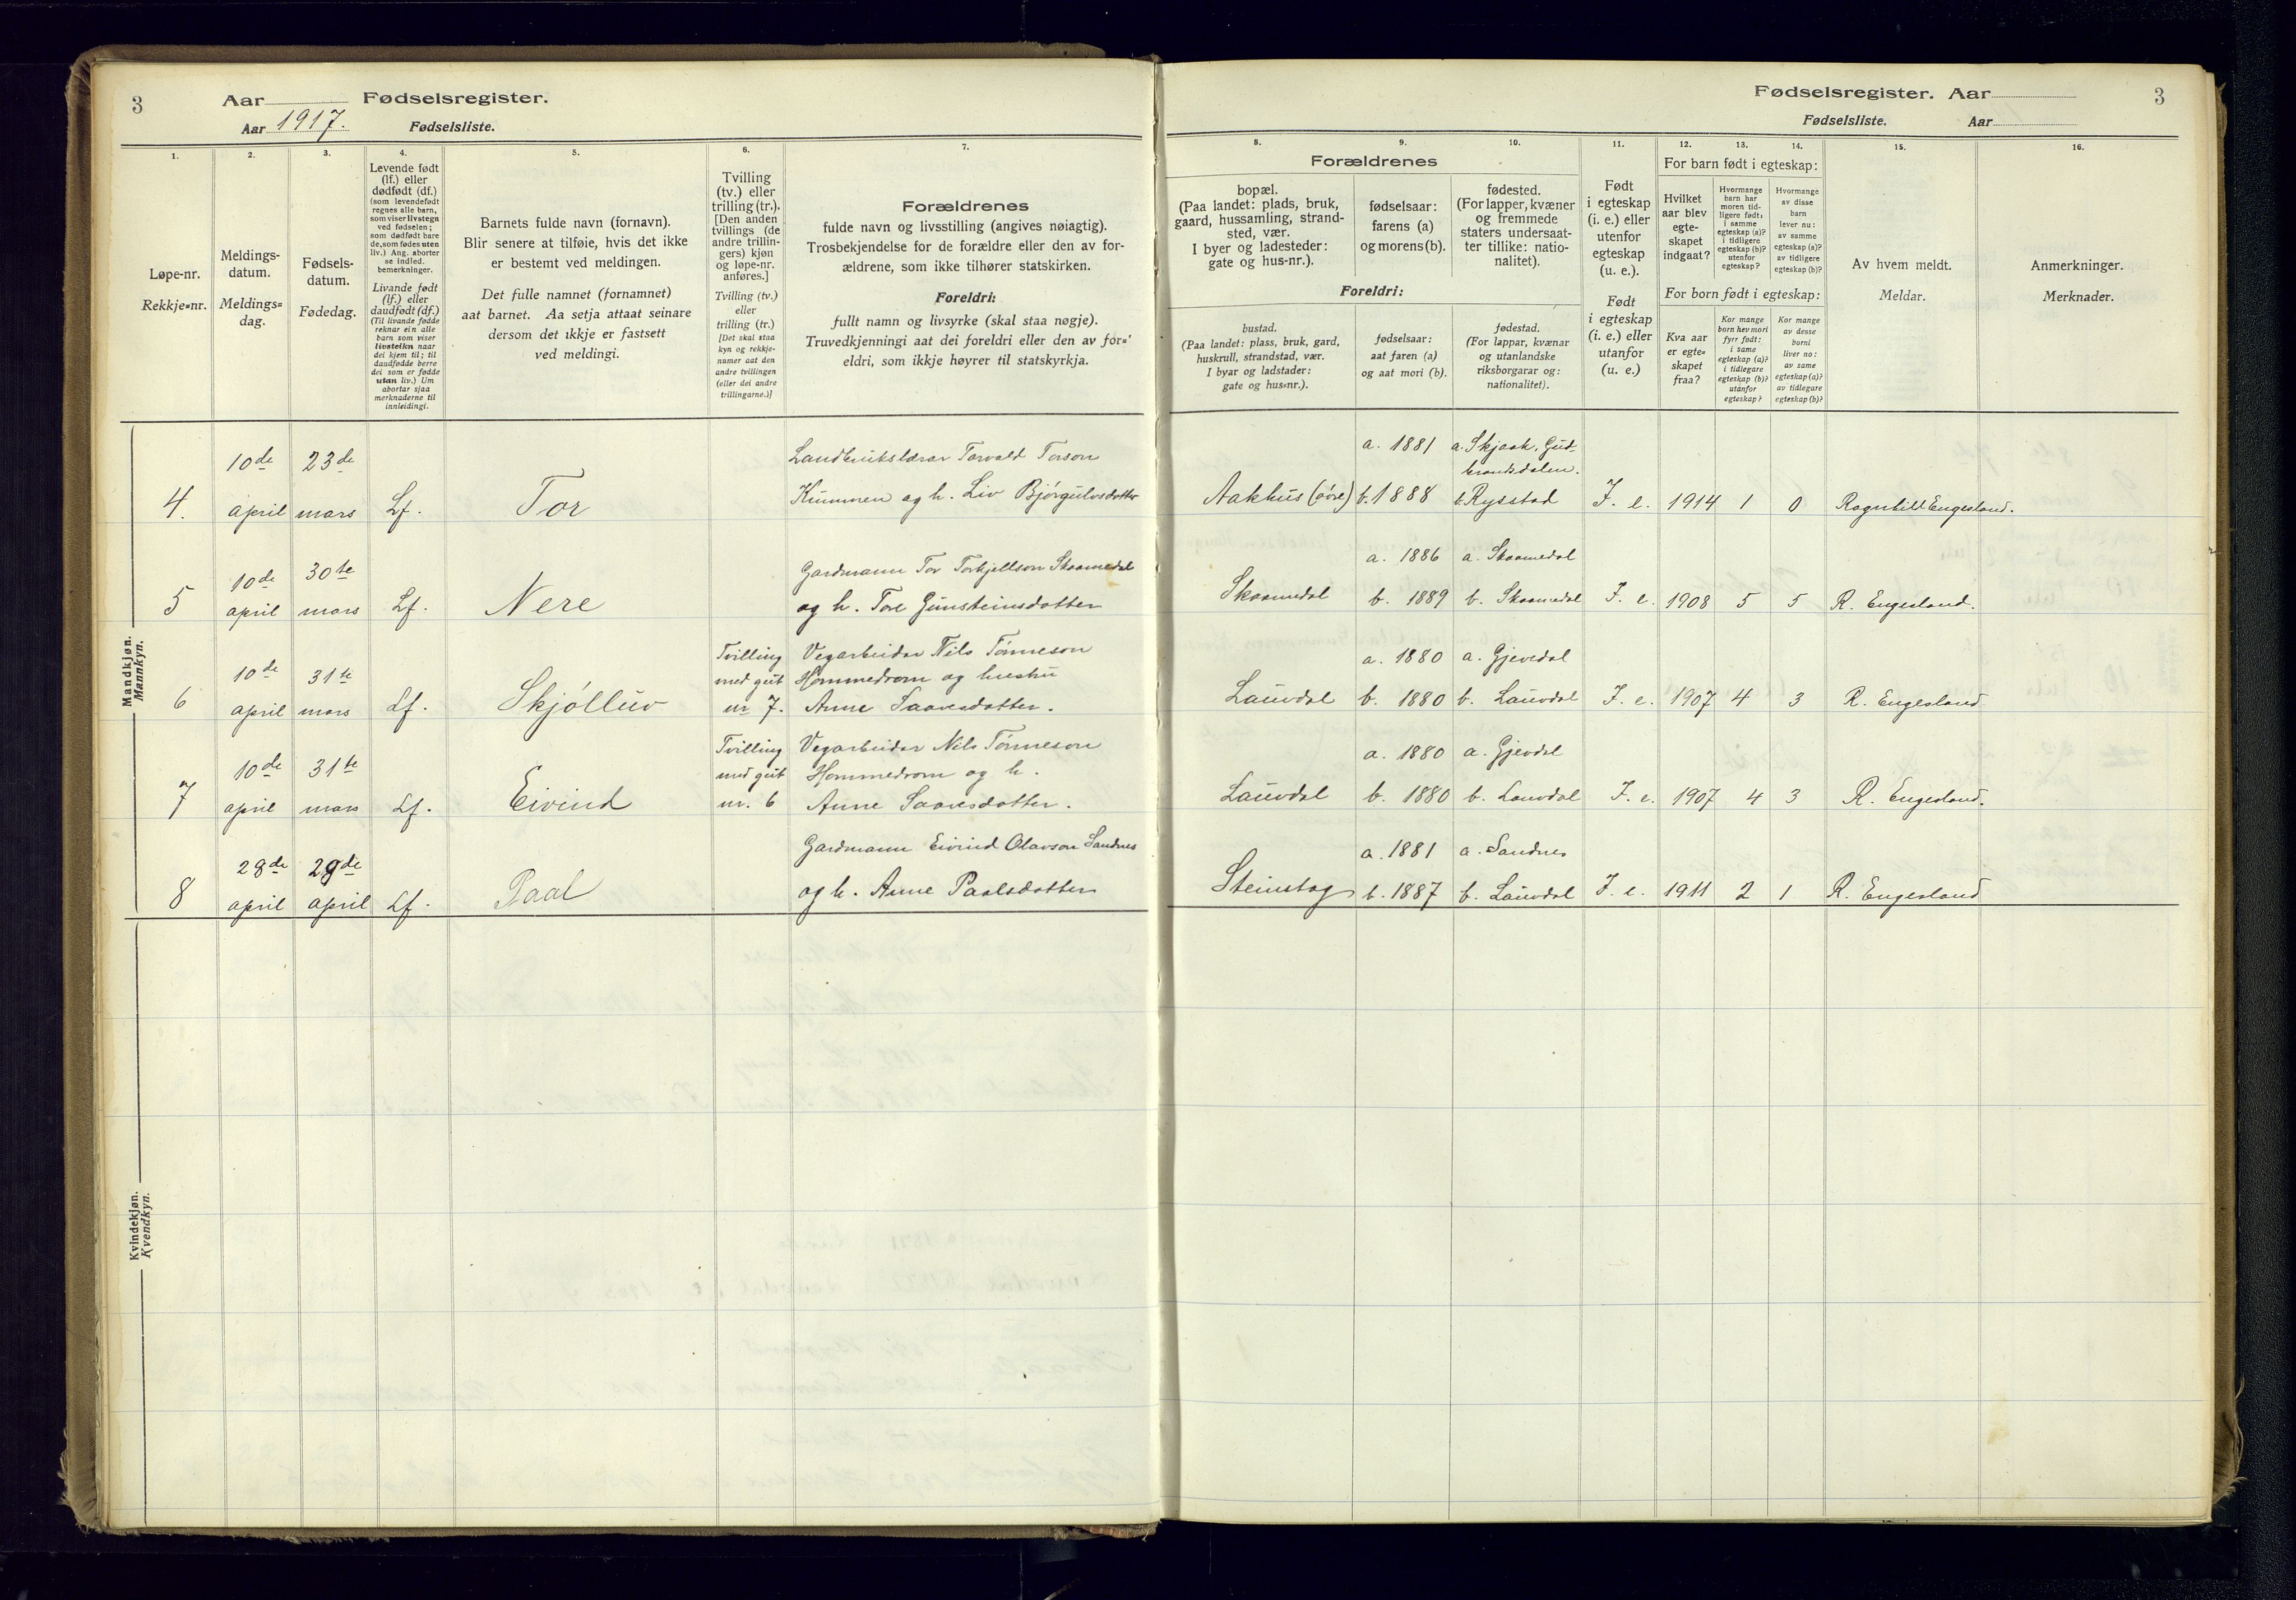 3
Aar Fødselsregister.
Aar 1917. Fødselsliste.
1.
Løpe-nr.
Rekkje=nr.
2.
Meldings-
datum.
Meldings=
dag.
3.
Fødsels-
datum.
Fødedag.
4.
Levende født
(lf.) eller
dødfødt (df.)
(som levendefødt
regnes alle barn,
som viser livstegn
ved fødselen;
som dødfødt bare
de, som fødes uten
liv.) Ang. aborter
se indled.
bemerkninger.
Livande født
(lf.) eller
daudfødt (df.)
(Til livande fødde
reknar ein alle
barn som viser
livsteikn naar
dei kjem til; til
daudfødde berre
dei som er fødde
utan liv.) Um
abortar sjaa
merknaderne til
innleidingi.
5.
Barnets fulde navn (fornavn).
Blir senere at tilføie, hvis det ikke
er bestemt ved meldingen.
Det fulle namnet (fornamnet)
aat barnet. Aa setja attaat seinare
dersom det ikkje er fastsett
ved meldingi.
6.
Tvilling
(tv.) eller
trilling (tr.).
[Den anden
tvillings (de
andre trillin-
gers) kjøn
og løpe-nr.
anføres.]
Tvilling (tv.)
eller
trilling (tr.)
[Det skal staa
kyn og rekkje-
numer aat den
andre tvillingen
(eller dei andre
trillingarne.)]
7.
Forældrenes
fulde navn og livsstilling (angives nøiagtig).
Trosbekjendelse for de forældre eller den av for-
ældrene, som ikke tilhører statskirken.
Foreldri:
fullt namn og livsyrke (skal staa nøgje).
Truvedkjenningi aat dei foreldri eller den av for=
eldri, som ikkje høyrer til statskyrkja.
Mandkjøn.
Mannkyn.
10de 23de Landbrukslærar Torvald Torson
4. april mars Lf. Tor Kummen og h. Liv Bjørgulvsdotter
10de 30te Gardmann Tor Torkjellson Skaamedal
5 april mars Lf. Nere og h. Tore Gunsteinsdotter
Tvilling Vegarbeidar Nils Tønneson
10de 31te med gut Hommedrom og hustru
6 april mars Lf. Skjølluv nr 7. Anne Saavesdotter.
Tvilling Vegarbeidar Nils Tønneson
10de 31te med gut Hommedrom og h.
7 april mars Lf. Eivind nr. 6 Anne Saavesdotter.
28de 29de Gardmann Eivind Olavson Sandnes
8 april april Lf. Paal og h. Anne Paalsdotter
Kvindekjøn.
Kvendkyn.
Fødselsregister. Aar 3
Fødselsliste. Aar
Forældrenes
8.
bopæl.
(Paa landet: plads, bruk,
gaard, hussamling, strand-
sted, vær.
I byer og ladesteder:
gate og hus-nr.).
9.
fødselsaar:
farens (a)
og morens (b).
10.
fødested.
(For lapper, kvæner
og fremmede
staters undersaat-
ter tillike: natio-
nalitet).
Foreldri:
bustad.
(Paa landet: plass, bruk, gard,
huskrull, strandstad, vær.
I byar og ladstader:
gate og hus=nr.).
fødselsaar:
aat faren (a)
og aat mori (b).
fødestad.
(For lappar, kvænar
og utanlandske
riksborgarar og:
nationalitet).
11.
Født
i egteskap
(i. e.) eller
utenfor
egteskap
(u. e.).
Født
i egteskap
(i. e.) eller
utanfor
(u. e.)
12. 13. 14.
For barn født i egteskap:
Hvilket
aar blev
egte-
skapet
indgaat?
Hvormange
barn har
moren tid-
ligere født:
i samme
egteskap (a)?
i tidligere
egteskap (b)?
utenfor
egteskap?
Hvormange
av disse
barn
lever nu:
av samme
egteskap (a)?
av tidligere
egteskap (b)?
For born født i egteskap:
Kva aar
er egte=
skapet
fraa?
Kor mange
born hev mori
fyrr født:
i same
egteskap (a)?
i tidlegare
egteskap (b)?
utanfor
egteskap?
Kor mange
av desse
borni
liver no:
av same
egteskap (a)?
av tidlegare
egteskap (b)?
15.
Av hvem meldt.
Meldar.
16.
Anmerkninger.
Merknader.
a. 1881 a. Skjaak, Gud-
brandsdalen.
Aakhus (øvre) b. 1888 b. Rysstad I. e. 1914 1 0 Ragnhild Engesland.
a. 1886 a. Skaamedal
Skaamedal b. 1889 b. Skaamedal I. e. 1908 5 5 R. Engesland.
a. 1880 a. Gjevedal
Lauvdal b. 1880 b. Lauvdal I. e. 1907 4 3 R. Engesland
a. 1880 a. Gjevdal
Lauvdal b. 1880 b. Lauvdal I. e. 1907 4 3 R. Engesland.
a. 1881 a. Sandnes
Steinstog b. 1887 b. Lauvdal I. e. 1911 2 1 R. Engesland